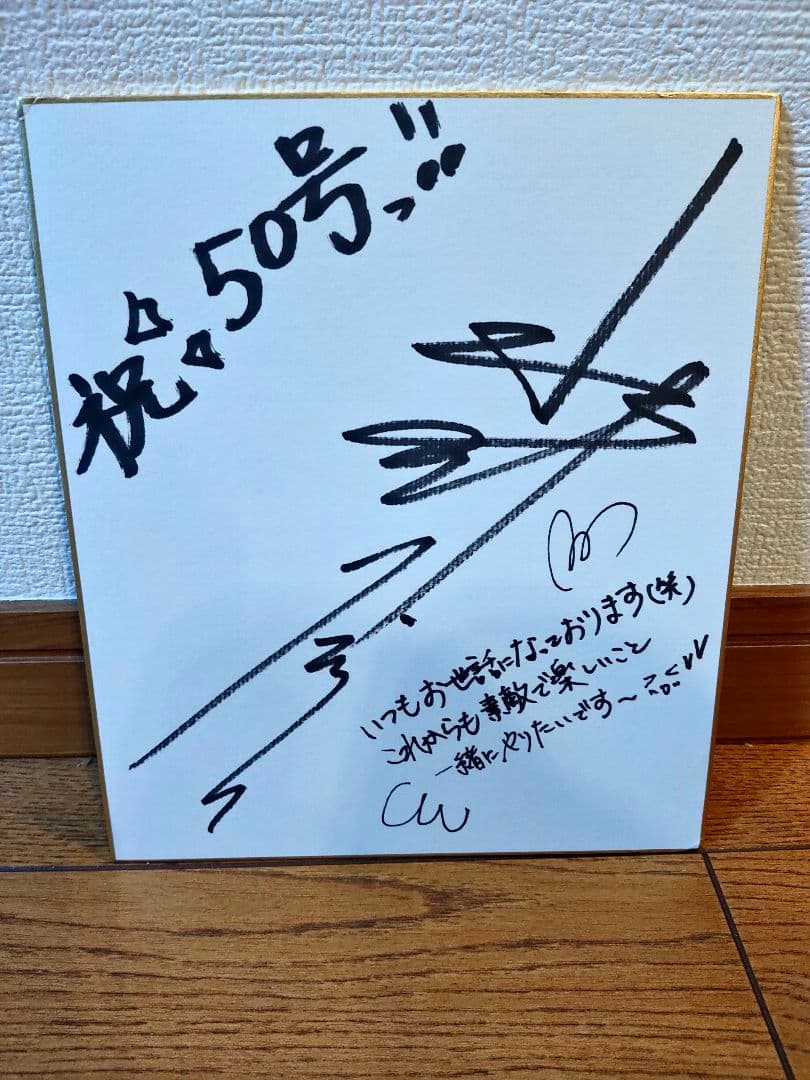 祝♪50号っ!!
いつもお世話になっております(笑)
これからも素敵で楽しいこと
一緒にやりたいです〜